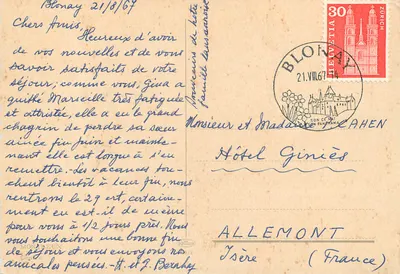 Blonay 21/8/67
Chers Amis,
Heureux d'avoir
de vos nouvelles et de vous
savoir satisfaits de votre
séjour, comme vous, Gina a
quitté Marseille très fatiguée
et attristée, elle a eu le grand
chagrin de perdre sa sœur
aînée fin juin et mainte-
nant elle est longue à s'en
remettre. Les vacances tou-
chent bientôt à leur fin, nous
rentrons le 29 ert, certaine-
ment en est-il de même
pour vous à 1/2 jours près. Nous
vous souhaitons une bonne fin
de séjour et vous envoyons nos
amicales pensées - H. et J. Bernhey
souvenirs de notre
famille
HELVETIA
30
ZÜRICH
BLONAY
21.VIII.67
Monsieur et Madame CAHEN
Hôtel Giniès
ALLEMONT
Isère (France)